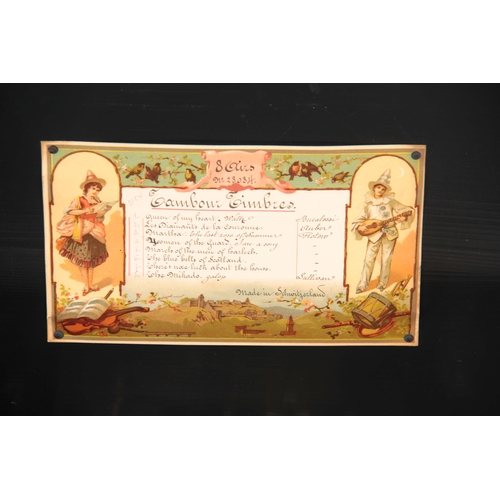 8 Airs
Tambour Timbres.
Queen of my heart, Waltz Bucalossi
Les Diamants de la Couronne Auber
Martha. The last rose of Summer Flotow
Yeomen of the Guard, I have a song "
March of the men of Harlech "
The blue bells of Scotland "
There's nae luck about the house. "
The Mikado, Sullivan
Made in Switzerland